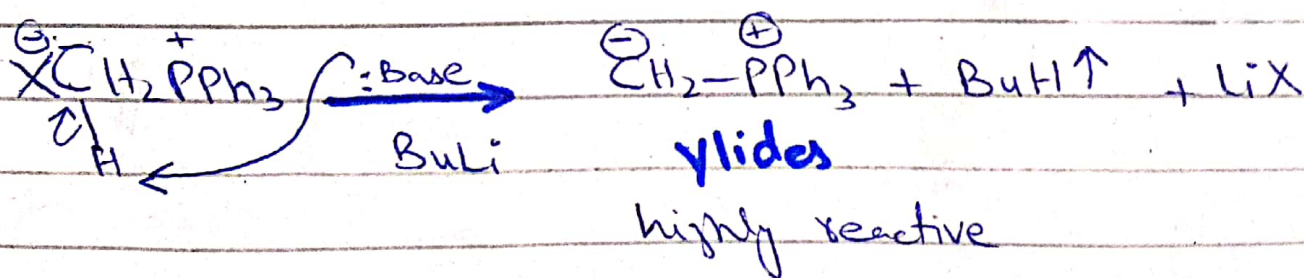 ⊖XCH₂P⁺Ph₃ :Base → ⊖CH₂–P⊕Ph₃ + BuH↑ + LiX
H BuLi ylides
highly reactive